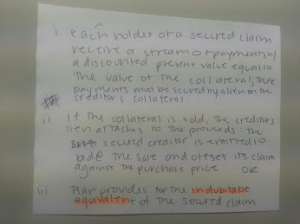 i. each holder of a secured claim
receive a stream of payments w/
a discounted present value equal to
the value of the collateral, these
payments must be secured by a lien on the
creditor's collateral
ii. If the collateral is sold, the creditors
lien attaches to the proceeds. the
secured creditor is entitled to
bid @ the sale and offset its claim
against the purchase price OR
iii Plan provides for the indubitable
equivalent of the secured claim